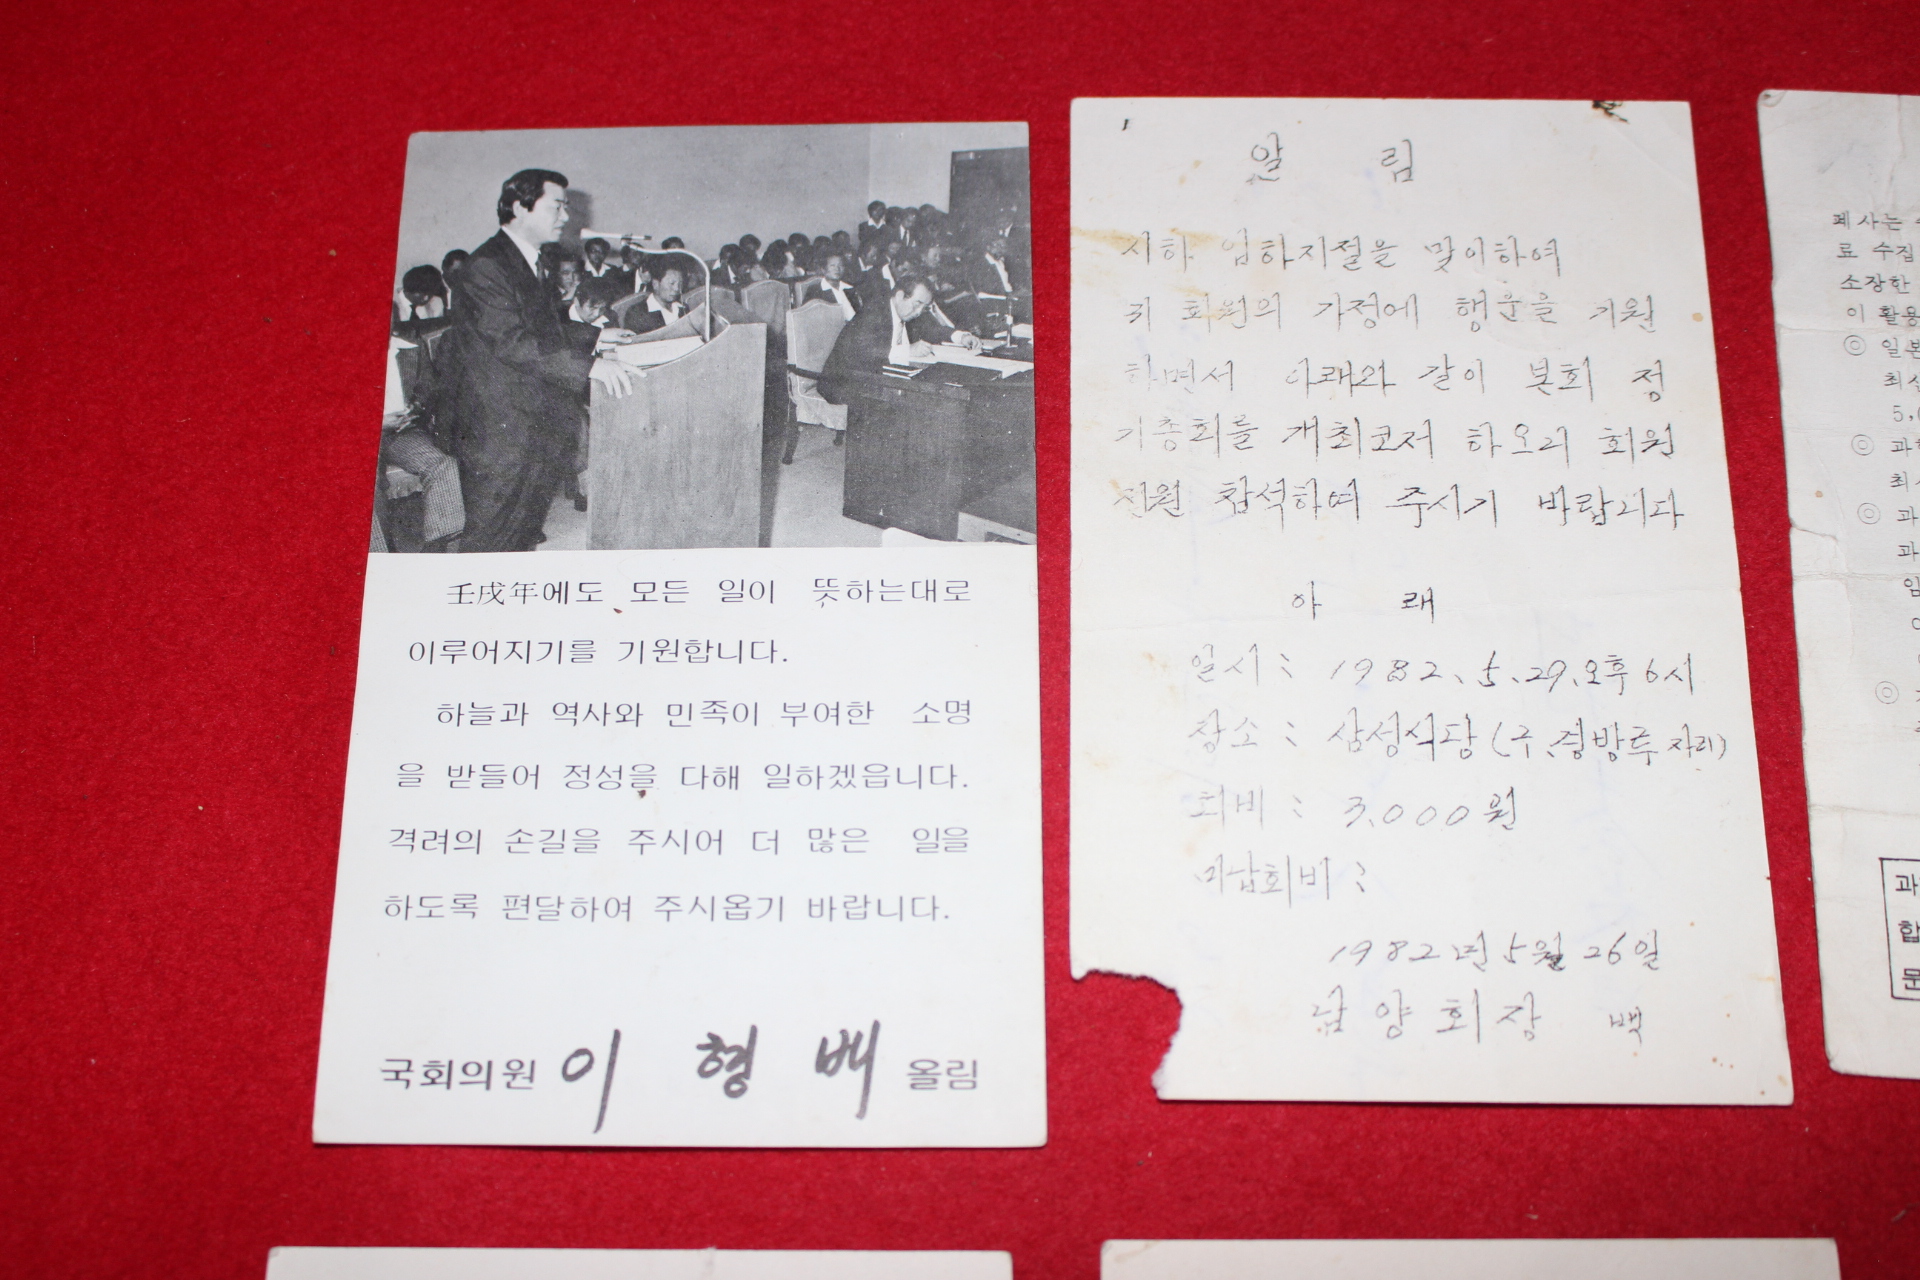 壬戌年에도 모든 일이 뜻하는대로
이루어지기를 기원합니다.
하늘과 역사와 민족이 부여한 소명
을 받들어 정성을 다해 일하겠읍니다.
격려의 손길을 주시어 더 많은 일을
하도록 편달하여 주시옵기 바랍니다.
국회의원 이 형 배 올림
알 림
시하 입하지절을 맞이하여
귀 회원의 가정에 행운을 기원
하면서 아래와 같이 본회 정
기총회를 개최코저 하오니 회원
전원 참석하여 주시기 바랍니다
아 래
일시 : 1982. 5. 29. 오후 6시
장소 : 삼성식당 (구. 경방루 자리)
회비 : 3,000원
미납회비 :
1982년 5월 26일
남양회장 백
폐사는
료 수집
소장한
이 활용
◎ 일본
최
5,
◎ 과
최
◎ 과
과
◎
과
합
문